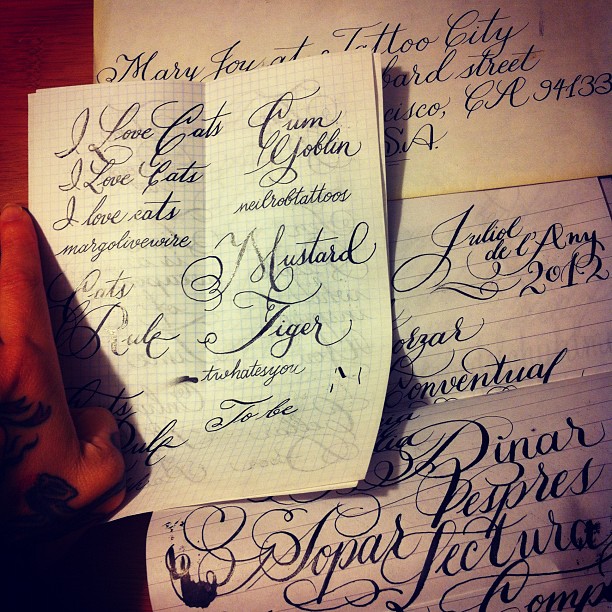 Mary Joy at Tattoo City
street
CA 94133
I Love Cats
I Love Cats
I love cats
margolivewire
Cats
Rule
Cum
Goblin
neilrobtattoos
Mustard
Tiger
twhatesyou
To be
Juliol
de l'Any
2012
Conventual
Dinar
Despres
Sopar Lectura